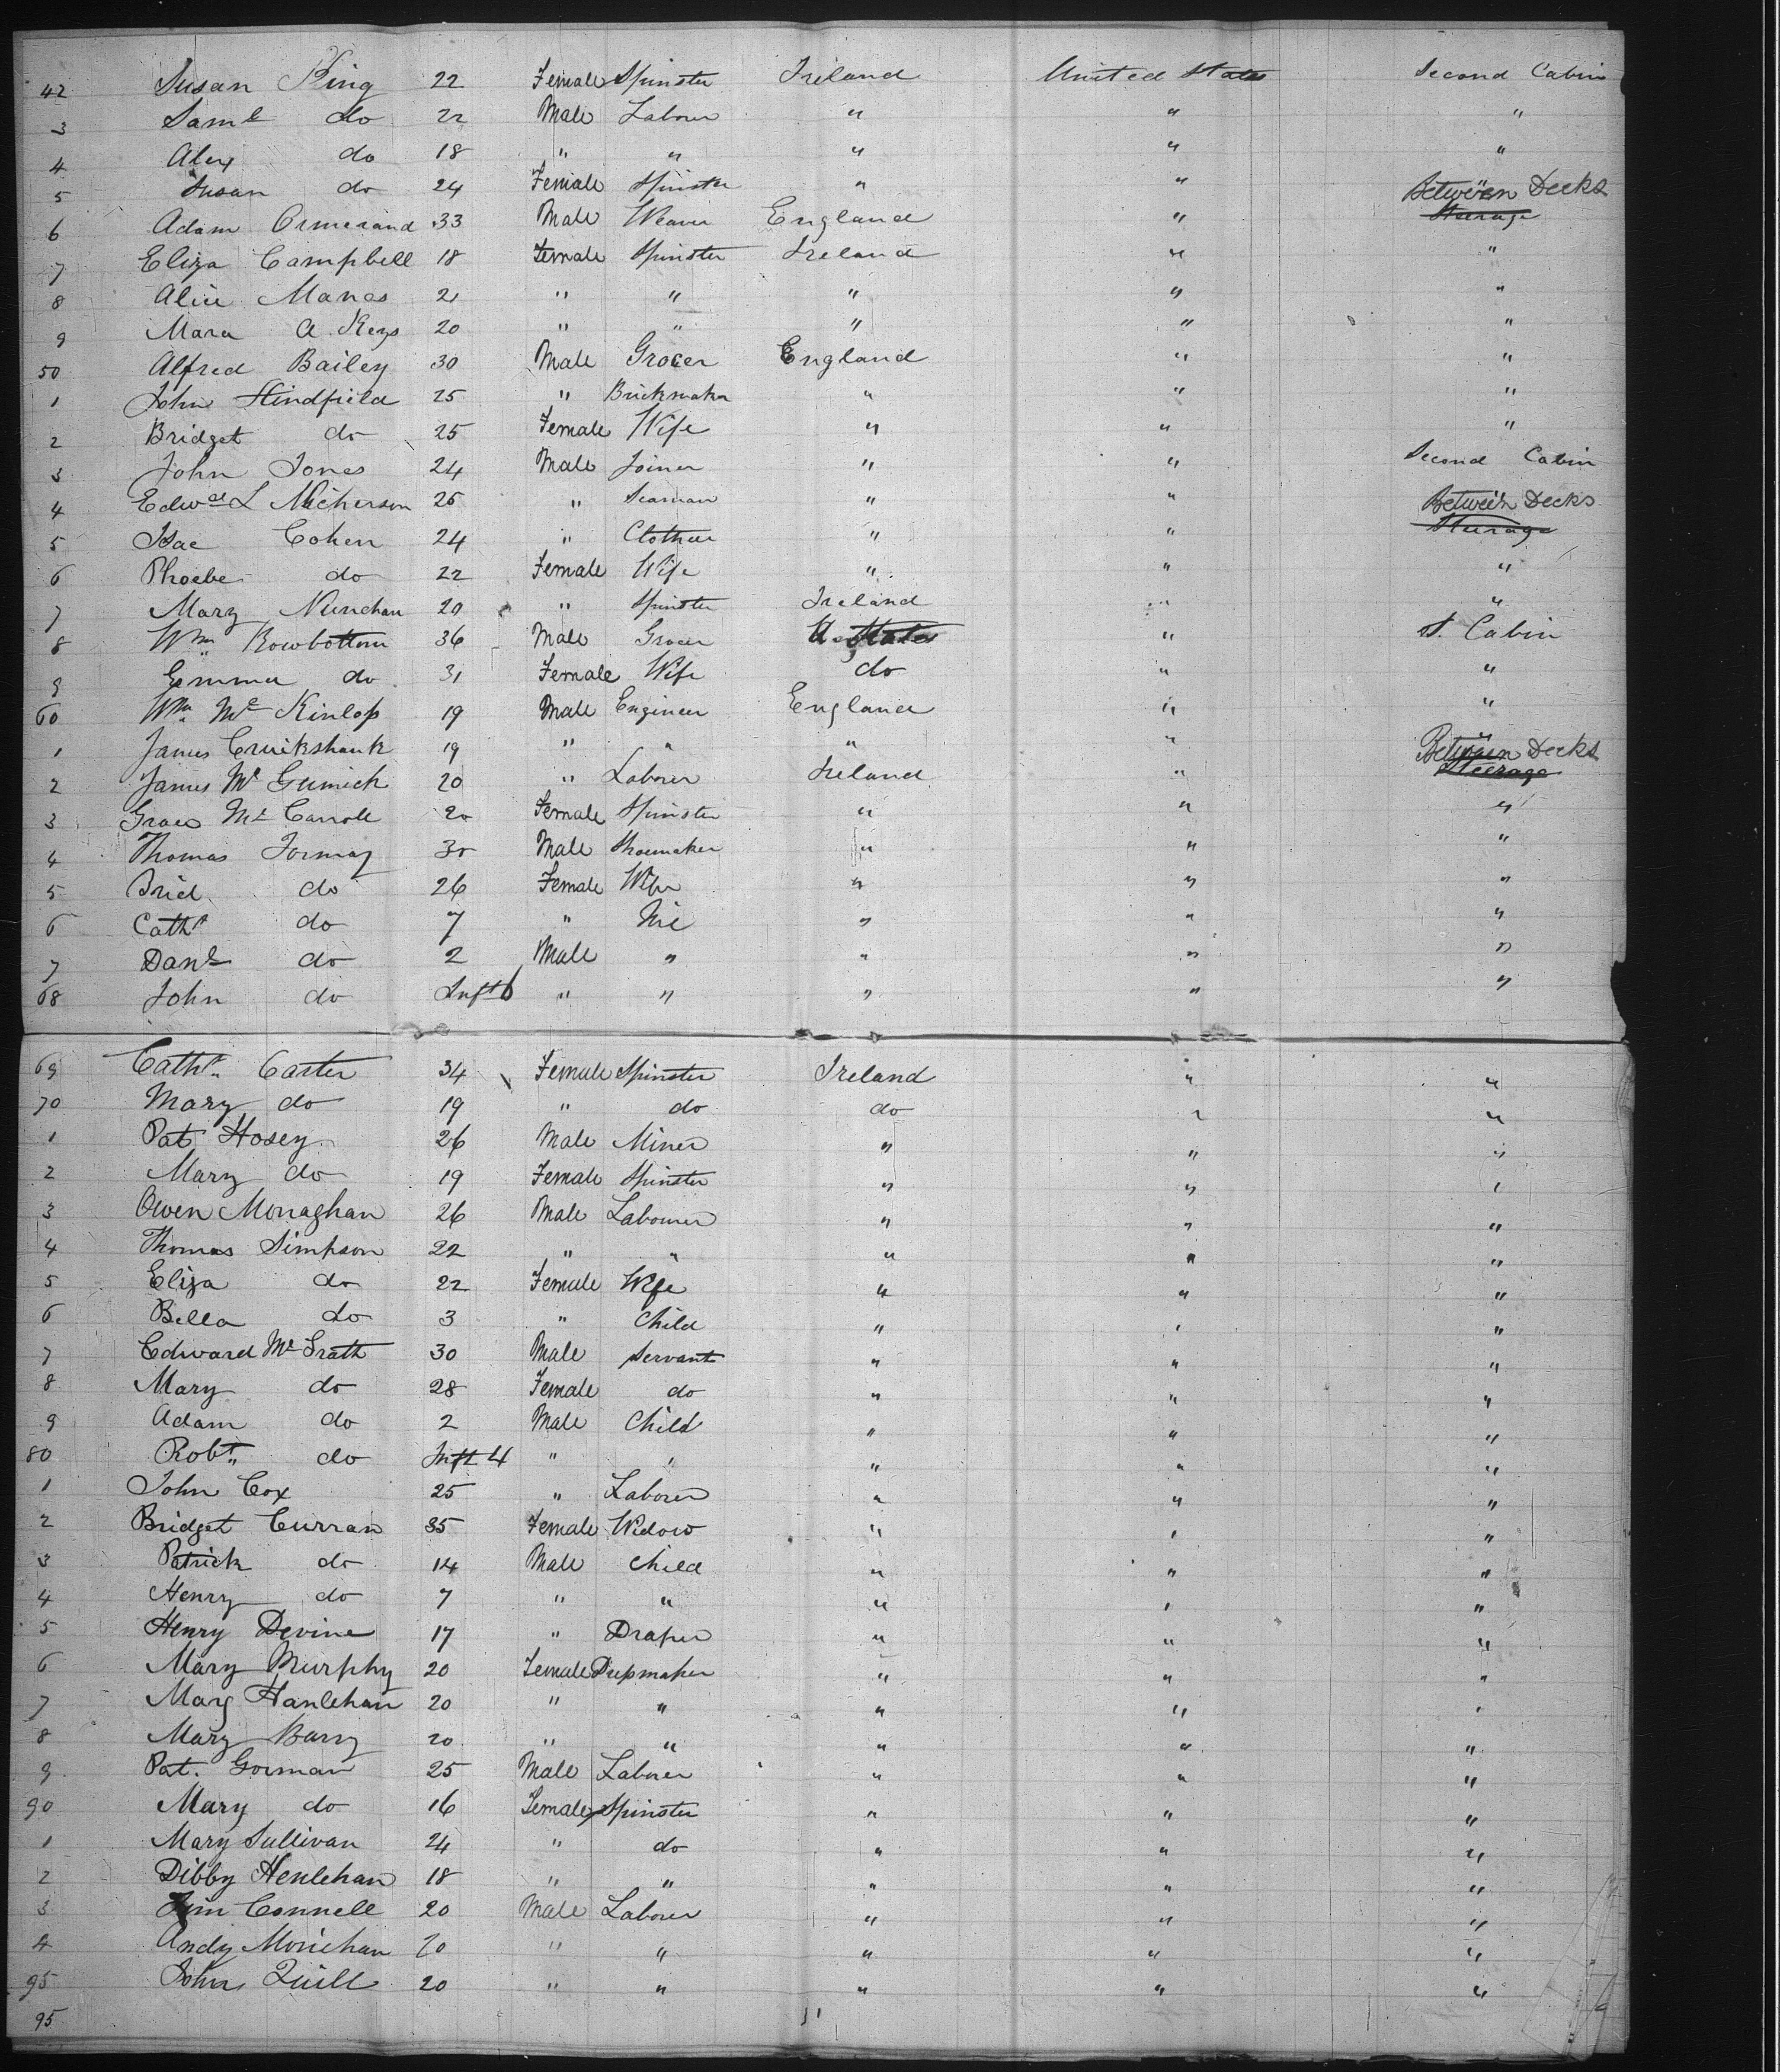 42 Susan King 22 Female Spinster Ireland United States Second Cabin
3 Saml do 22 Male Laborer " " "
4 Alex do 18 " " " " "
5 Susan do 24 Female Spinster " " Between Decks
6 Adam Ormerand 33 Male Weaver England " Steerage
7 Eliza Campbell 18 Female Spinster Ireland " "
8 Alice Manes 21 " " " " "
9 Mara A Keys 20 " " " " "
50 Alfred Bailey 30 Male Grocer England " "
1 John Hindfield 25 " Brickmaker " " "
2 Bridget do 25 Female Wife " " "
3 John Jones 24 Male Joiner " " Second Cabin
4 Edwd L Nicherson 25 " Seaman " " Between Decks
5 Isac Cohen 24 " Clothier " " Steerage
6 Phoebe do 22 Female Wife " " "
7 Mary Nunchan 20 " Spinster Ireland " "
8 Wm Rowbottom 36 Male Grocer U States " S. Cabin
9 Emma do 31 Female Wife do " "
60 Wm Mc Kinloss 19 Male Engineer England " "
1 James Cruikshank 19 " " " " "
2 James Mc Gumick 20 " Laborer Ireland " Between Decks Steerage
3 Grace Mc Carroll 20 Female Spinster " " "
4 Thomas Tormay 30 Male Shoemaker " " "
5 Brid do 26 Female Wife " " "
6 Cathe do 7 " " " "
7 Danl do 2 Male " " " "
68 John do Inft 6 " " " " "
69 Cathe Carter 34 Female Spinster Ireland " "
70 Mary do 19 " do do " "
1 Pat Hosey 26 Male Miner " " "
2 Mary do 19 Female Spinster " " "
3 Owen Monaghan 26 Male Labourer " " "
4 Thomas Simpson 22 " " " " "
5 Eliza do 22 Female Wife " " "
6 Bella do 3 " Child " " "
7 Edward Mc Grath 30 Male Servant " " "
8 Mary do 28 Female do " " "
9 Adam do 2 Male Child " " "
80 Robt do Inft 4 " " " " "
1 John Cox 25 " Laborer " " "
2 Bridget Curran 35 Female Widow " " "
3 Patrick do 14 Male Child " " "
4 Henry do 7 " " " " "
5 Henry Devine 17 " Draper " " "
6 Mary Murphy 20 Female Dressmaker " " "
7 Mary Hanlehan 20 " " " " "
8 Mary Barry 20 " " " " "
9 Pat. Gorman 25 Male Laborer " " "
90 Mary do 16 Female Spinster " " "
1 Mary Sullivan 24 " do " " "
2 Dibby Henlehan 18 " " " " "
3 Jim Connell 20 Male Laborer " " "
4 Andy Morichan 20 " " " " "
95 John Quill 20 " " " " "
95